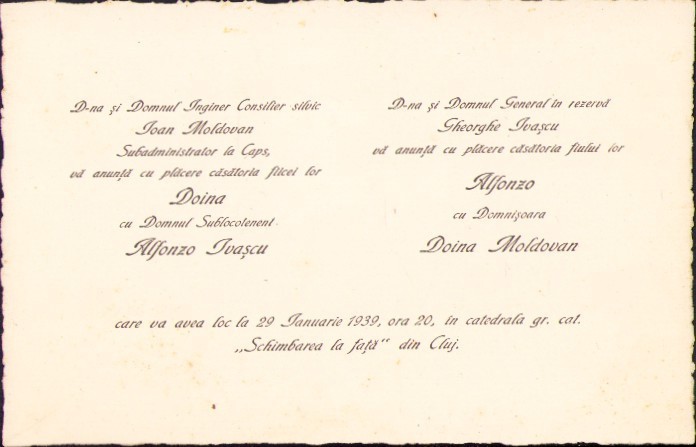 D-na și Domnul Inginer Consilier silvic
Ioan Moldovan
Subadministrator la Caps,
vă anunță cu plăcere căsătoria fiicei lor
Doina
cu Domnul Sublocotenent
Alfonzo Ivașcu
D-na și Domnul General în rezervă
Gheorghe Ivașcu
vă anunță cu plăcere căsătoria fiului lor
Alfonzo
cu Domnișoara
Doina Moldovan
care va avea loc la 29 Ianuarie 1939, ora 20, în catedrala gr. cat.
„Schimbarea la față“ din Cluj.